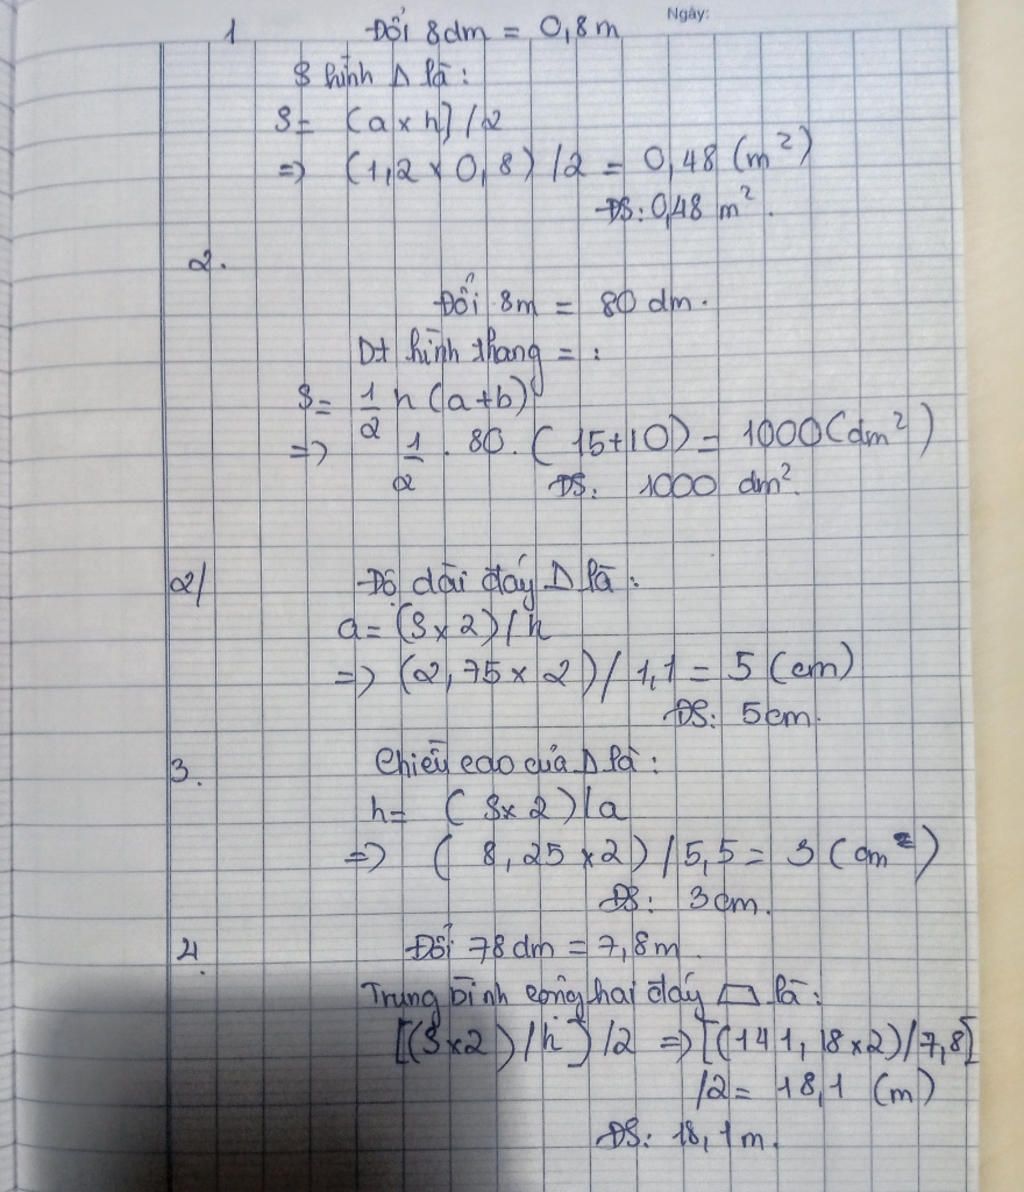 Ngày:
1 Đổi 8dm = 0,8m
S hình Δ là:
S= (a x h) / 2
=> (1,2 x 0,8) / 2 = 0,48 (m²)
ĐS: 0,48 m².
2.
Đổi 8m = 80 dm.
Dt hình thang = :
S= 1/2 h (a+b)
=> 1/2 . 80. (15+10) = 1000 (dm²)
ĐS: 1000 dm².
2/ Độ dài đáy Δ là:
a= (S x 2) / h
=> (2,75 x 2) / 1,1 = 5 (cm)
ĐS: 5cm.
3. Chiều cao của Δ là:
h= (S x 2) / a
=> (8,25 x 2) / 5,5 = 3 (cm²)
ĐS: 3cm.
4. Đổi 78 dm = 7,8 m.
Trung bình cộng hai đáy là:
[(S x 2) / h] / 2 => [(141,18 x 2) / 7,8]
/2 = 18,1 (m)
ĐS: 18,1m.